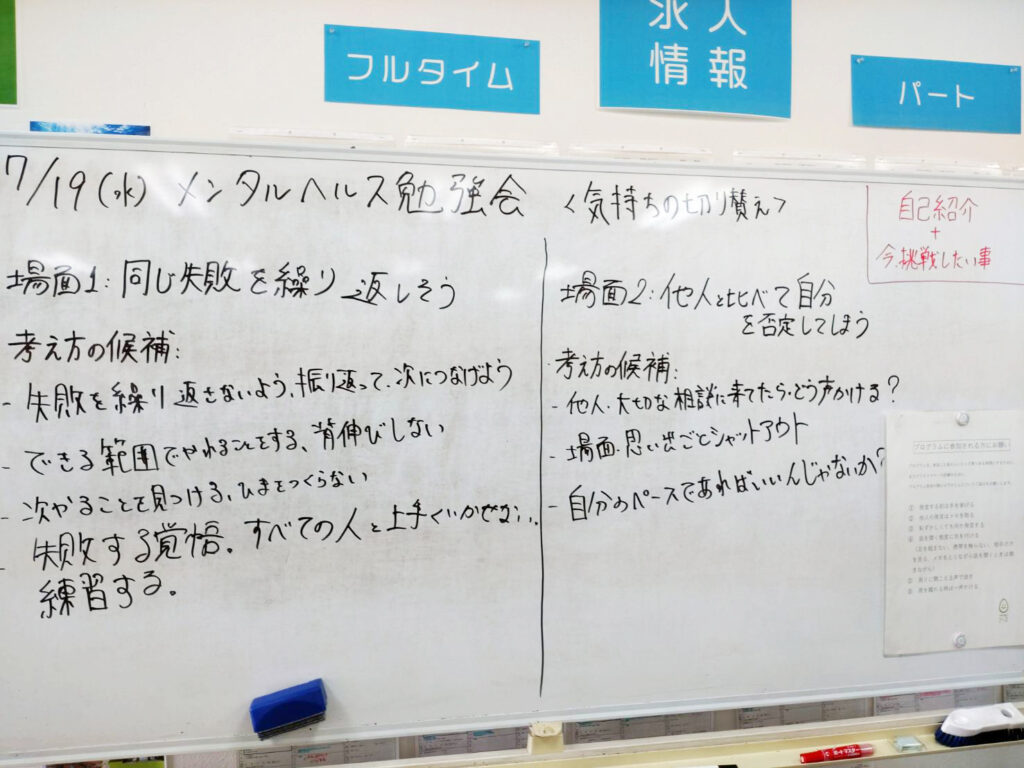 フルタイム
求人
情報
パート
7/19(水) メンタルヘルス勉強会 <気持ちの切り替え>
自己紹介
+
今、挑戦したい事
場面1:同じ失敗を繰り返しそう
考え方の候補:
- 失敗を繰り返さないよう、振り返って、次につなげよう
- できる範囲でやれることをする、背伸びしない
- 次やることを見つける、ひまをつくらない
- 失敗する覚悟。すべての人と上手くいかせない。
練習する。
場面2:他人と比べて自分
を否定してしまう
考え方の候補:
- 他人・大切な相談に来てたら・どう声かける?
- 場面・思い出ごとシャットアウト
- 自分のペースであればいいんじゃないか?
プログラムに参加される方にお願い